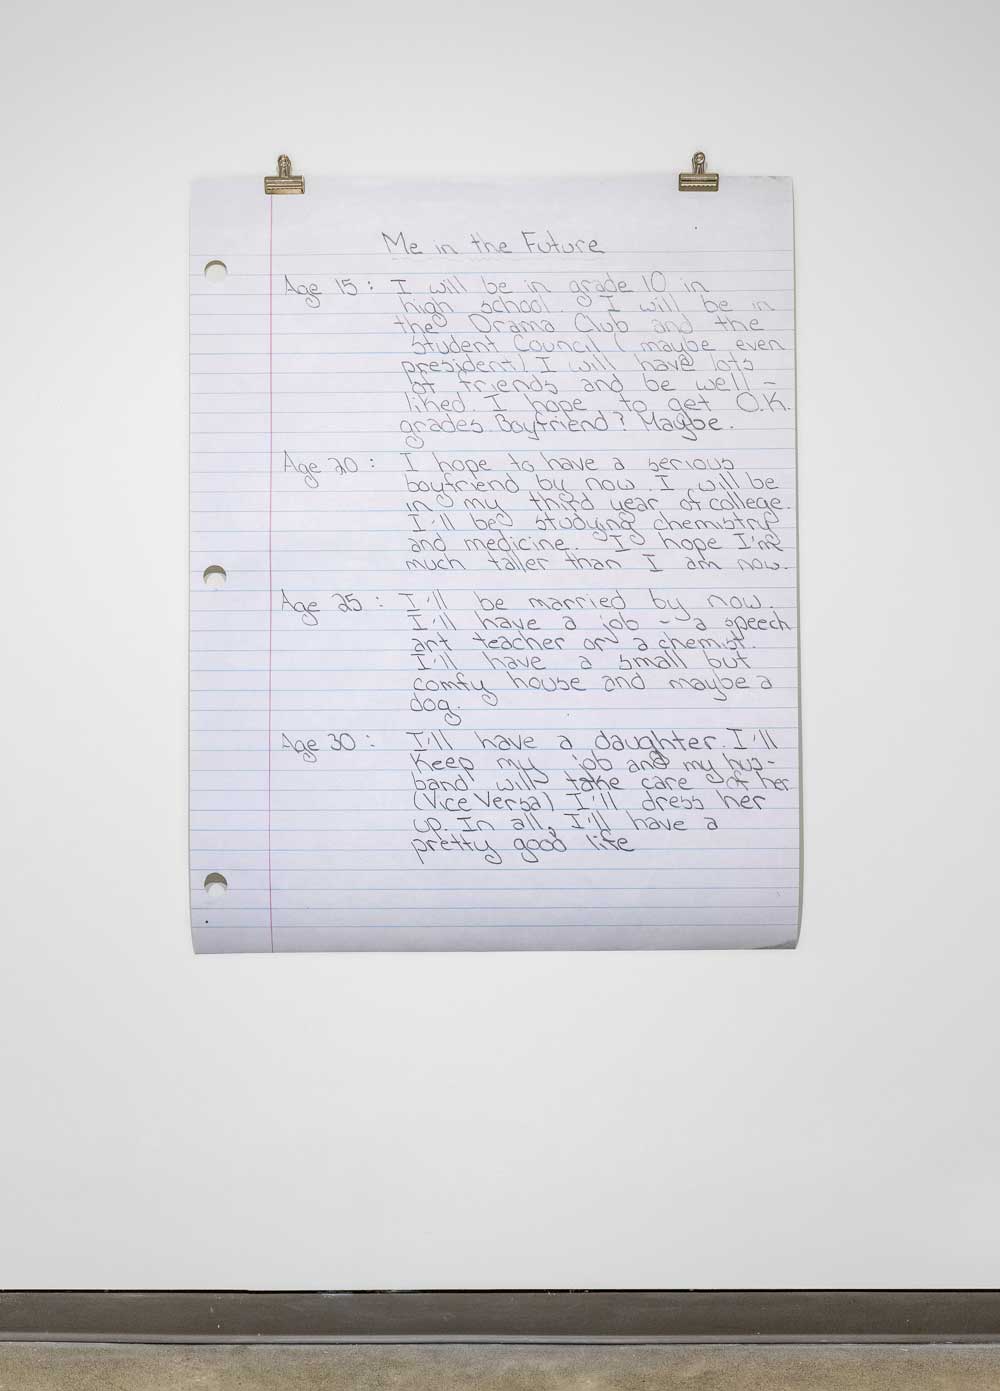 Me in the Future
Age 15 : I will be in grade 10 in
high school. I will be in
the Drama Club and the
Student Council (maybe even
president) I will have lots
of friends and be well-
liked. I hope to get O.K.
grades. Boyfriend? Maybe.
Age 20 : I hope to have a serious
boyfriend by now I will be
in my third year of college.
I'll be studying chemistry
and medicine. I hope I'm
much taller than I am now.
Age 25 : I'll be married by now.
I'll have a job - a speech
art teacher or a chemist.
I'll have a small but
comfy house and maybe a
dog.
Age 30 : I'll have a daughter. I'll
Keep my job and my hus-
band will take care of her
(Vice Versa) I'll dress her
up. In all, I'll have a
pretty good life